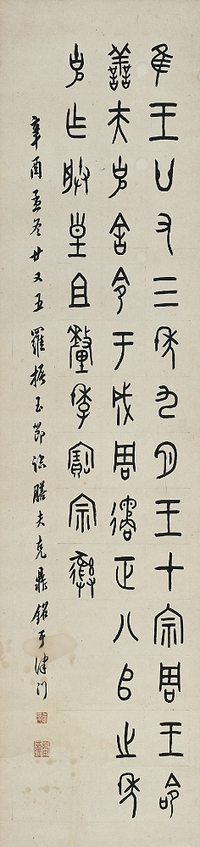 隹王廿又三年九月王才宗周王命
善夫克舍令于成周遹正八𠂤之年
克乍朕皇且釐季寶宗彝
辛酉孟冬廿又五羅振玉節臨膳夫克鼎銘于津門